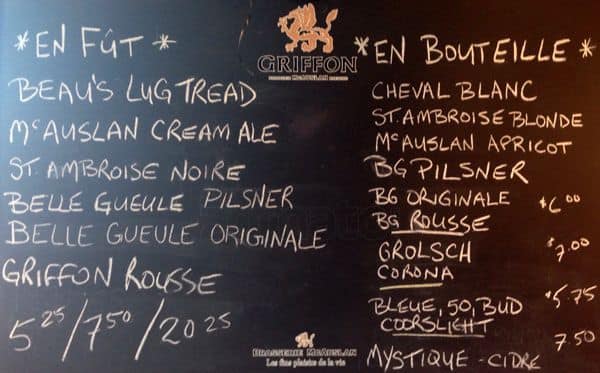 *EN FÛT*
BEAU'S LUGTREAD
McAUSLAN CREAM ALE
ST. AMBROISE NOIRE
BELLE GUEULE PILSNER
BELLE GUEULE ORIGINALE
GRIFFON ROUSSE
5 25 / 7 50 / 20 25
GRIFFON
BRASSERIE McAUSLAN BREWING
*EN BOUTEILLE*
CHEVAL BLANC
ST. AMBROISE BLONDE
McAUSLAN APRICOT
BG PILSNER
BG ORIGINALE
BG ROUSSE $6.00
GROLSCH
CORONA $7.00
BLEUE, 50, BUD
COORSLIGHT $5.75
MYSTIQUE - CIDRE 7.50
BRASSERIE McAUSLAN
Les fins plaisirs de la vie